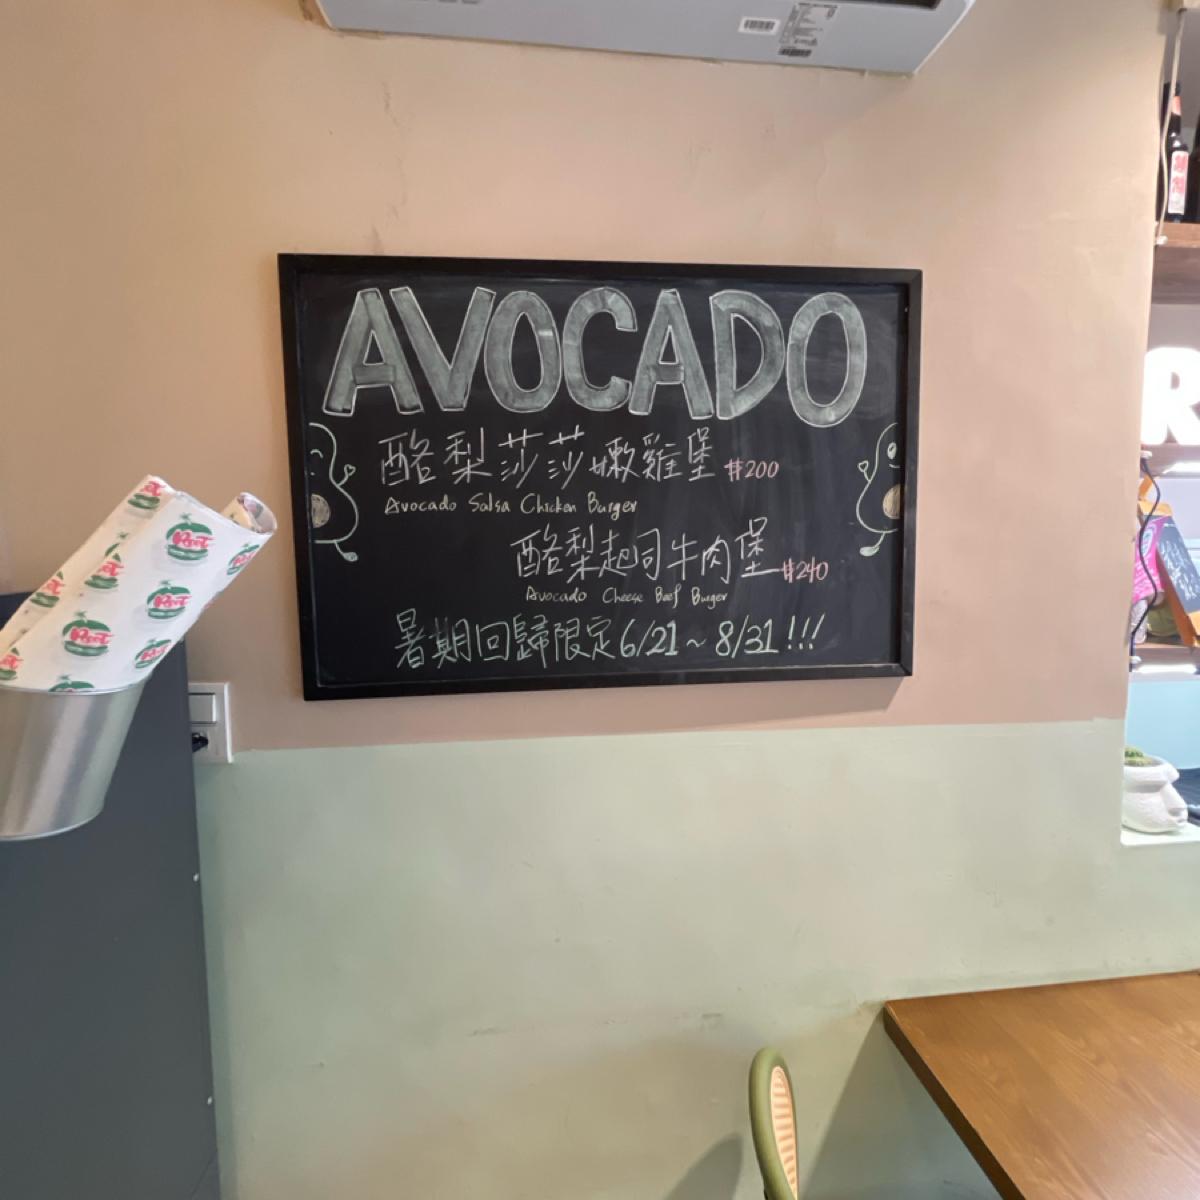 AVOCADO
酪梨莎莎嫩雞堡 #200
Avocado Salsa Chicken Burger
酪梨起司牛肉堡 #240
Avocado Cheese Beef Burger
暑期回歸限定6/21~8/31!!!
R